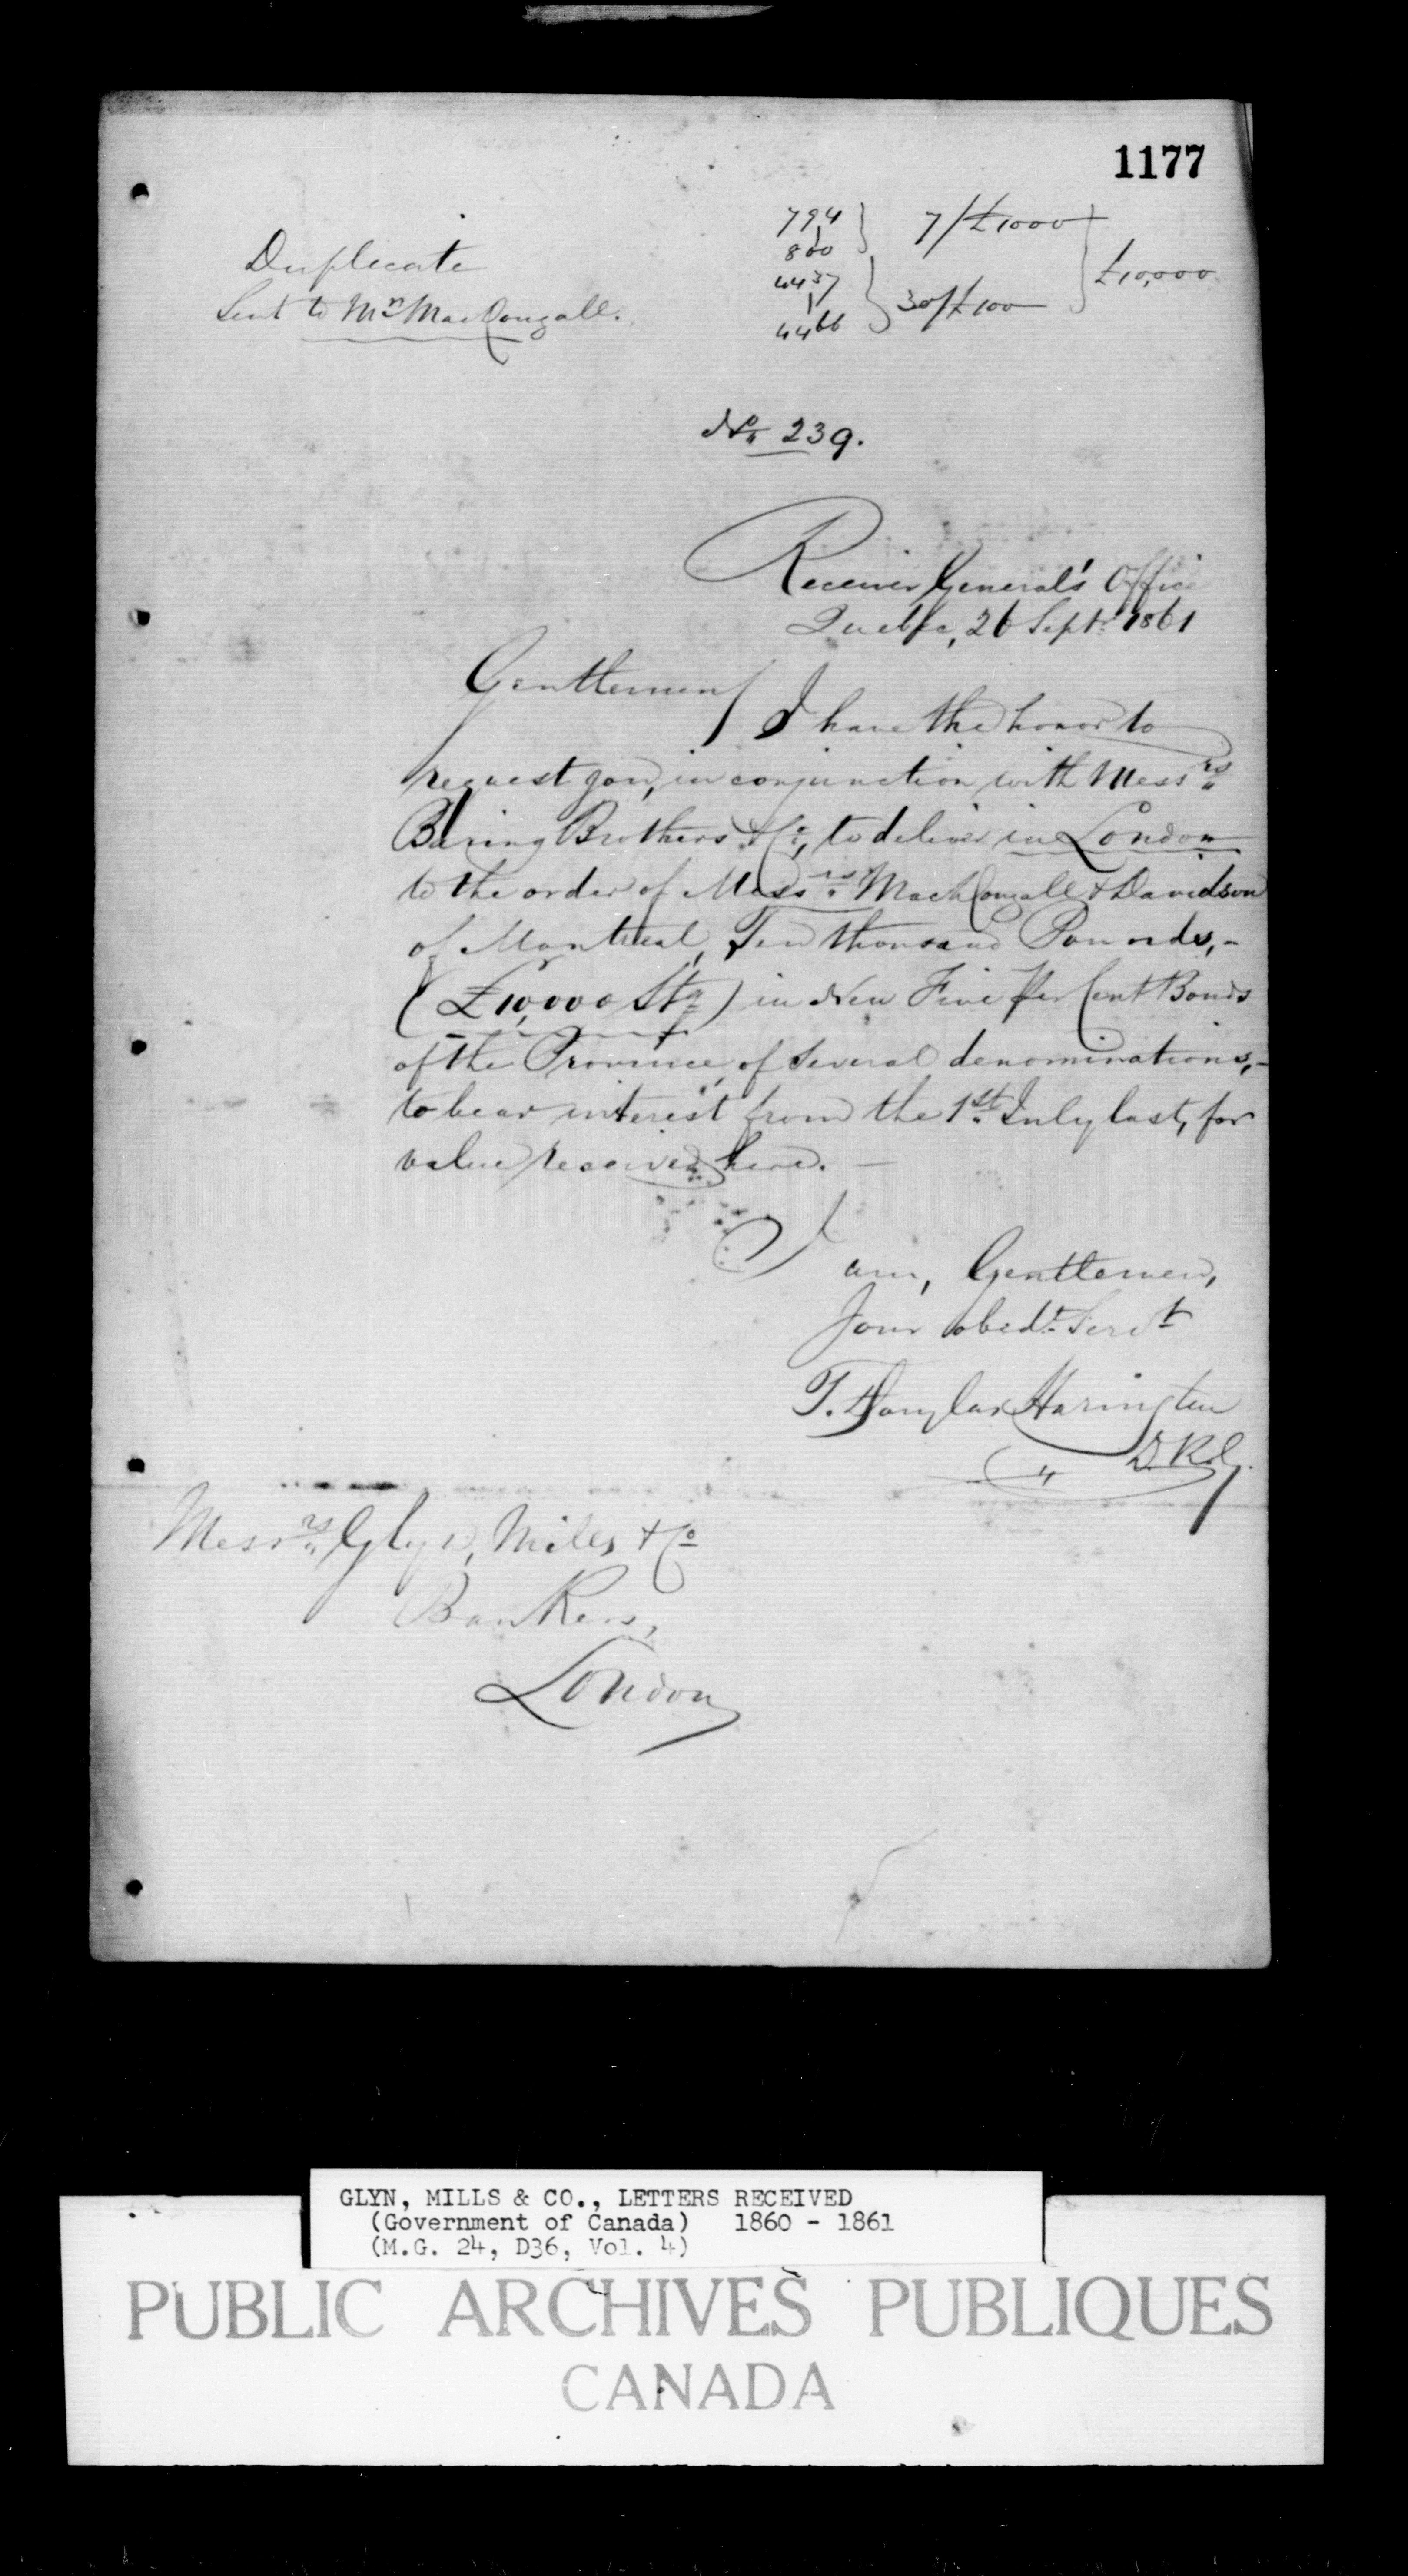 1177
Duplicate
Sent to Mr. MacDougall.
794
800
7/£1000
4437
4466
30/£100
£10,000
No. 239.
Receiver General's Office
Quebec, 26 Septr. 1861
Gentlemen
I have the honor to
request you, in conjunction with Messrs.
Baring Brothers & Co., to deliver in London
to the order of Messrs. MacDougall & Davidson
of Montreal, Ten thousand Pounds,-
(£10,000 Stg) in New Five per Cent Bonds
of the Province, of several denominations,-
to bear interest from the 1st. July last, for
value received here. —
I am, Gentlemen,
Your obedt. Servt
T. Douglas Harington
D.R.G.
Messrs. Glyn, Mills & Co
Bankers,
London
GLYN, MILLS & CO., LETTERS RECEIVED
(Government of Canada) 1860 - 1861
(M.G. 24, D36, Vol. 4)
PUBLIC ARCHIVES PUBLIQUES
CANADA